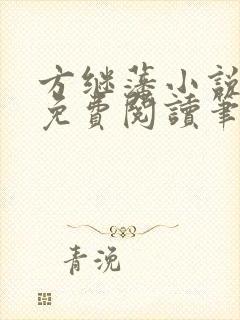 方继藩小說
免費閱讀筆
青浼